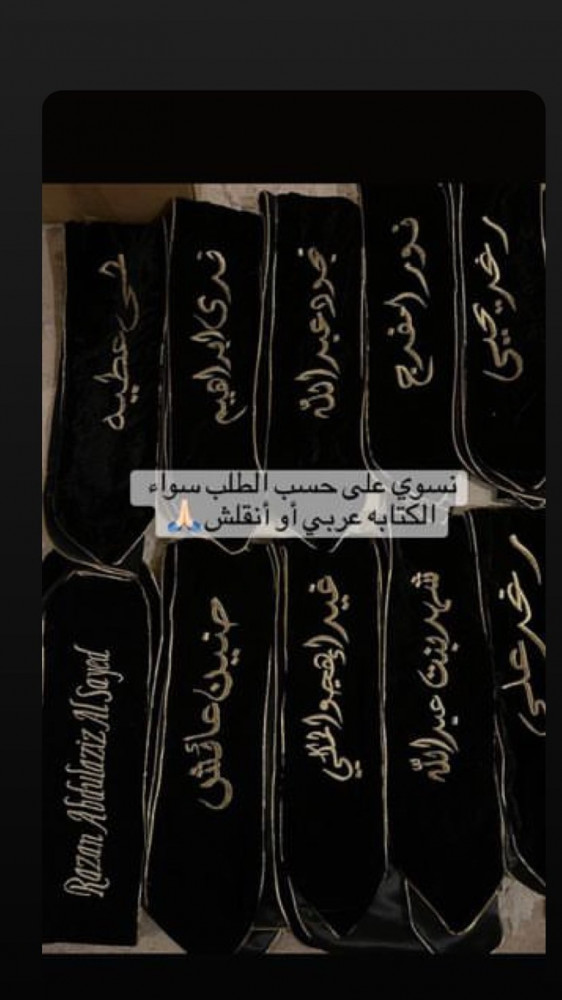 ضحى عطيه
ندى ابراهيم
جود عبدالله
نور الفرج
رغد يحيى
نسوي على حسب الطلب سواء
الكتابه عربي أو أنقلش🙏🏻
Razan Abdulaziz Al Sayed
حنين عائش
غيداء
شهد بنت عبدالله
رغد علي